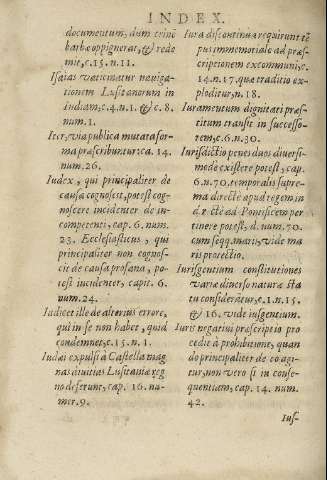 INDEX.
documentum, dum crinē
barbæ oppignerat, & rede
mit, c. 15. n. 11.
Isaias vaticinatur naviga-
tionem Lusitanorum in
Indiam, c. 4. n. 1. & c. 8.
num. 1.
Iter, via publica mutata for-
ma præscribuntur: ca. 14.
num. 26.
Iudex, qui principaliter de
causa cognoscit, potest cog-
noscere incidenter de in-
competenti, cap. 6. num.
23. Ecclesiasticus, qui
principaliter non cognos-
cit de causa profana, po-
test incidenter, capit. 6.
num. 24.
Iudicet ille de alterius errore,
qui in se non habet, quid
condemnet, c. 15. n. 1.
Iudæi expulsi à Castella mag
nas divitias Lusitaniæ reg
no deferunt, cap. 16. nu-
mer. 9.
Iura discontinua requirunt tē
pus immemoriale ad præs-
criptionem ex communi, c.
14. n. 17. quæ traditio ex-
ploditur, n. 18.
Iuramentum dignitati præs-
titum transit in successo-
rem, c. 6. n. 30.
Iurisdictio penes duos diversi-
mode existere potest, cap.
6. n. 70. temporalis supre-
ma directè apud regem in
directè ad Pontificem per
tinere potest, d. num. 70.
cum seqq. maris, vide ma
ris protectio.
Iurisgentium constitutiones
variæ diverso naturæ sta
tu consideratur, c. 1. n. 15.
& 16. vide ius gentium.
Iuris negativi præscriptio pro
cedit à prohibitione, quan
do principaliter de eo agi-
tur, non vero si in conse-
quentiam, cap. 14. num.
42.
Ius-